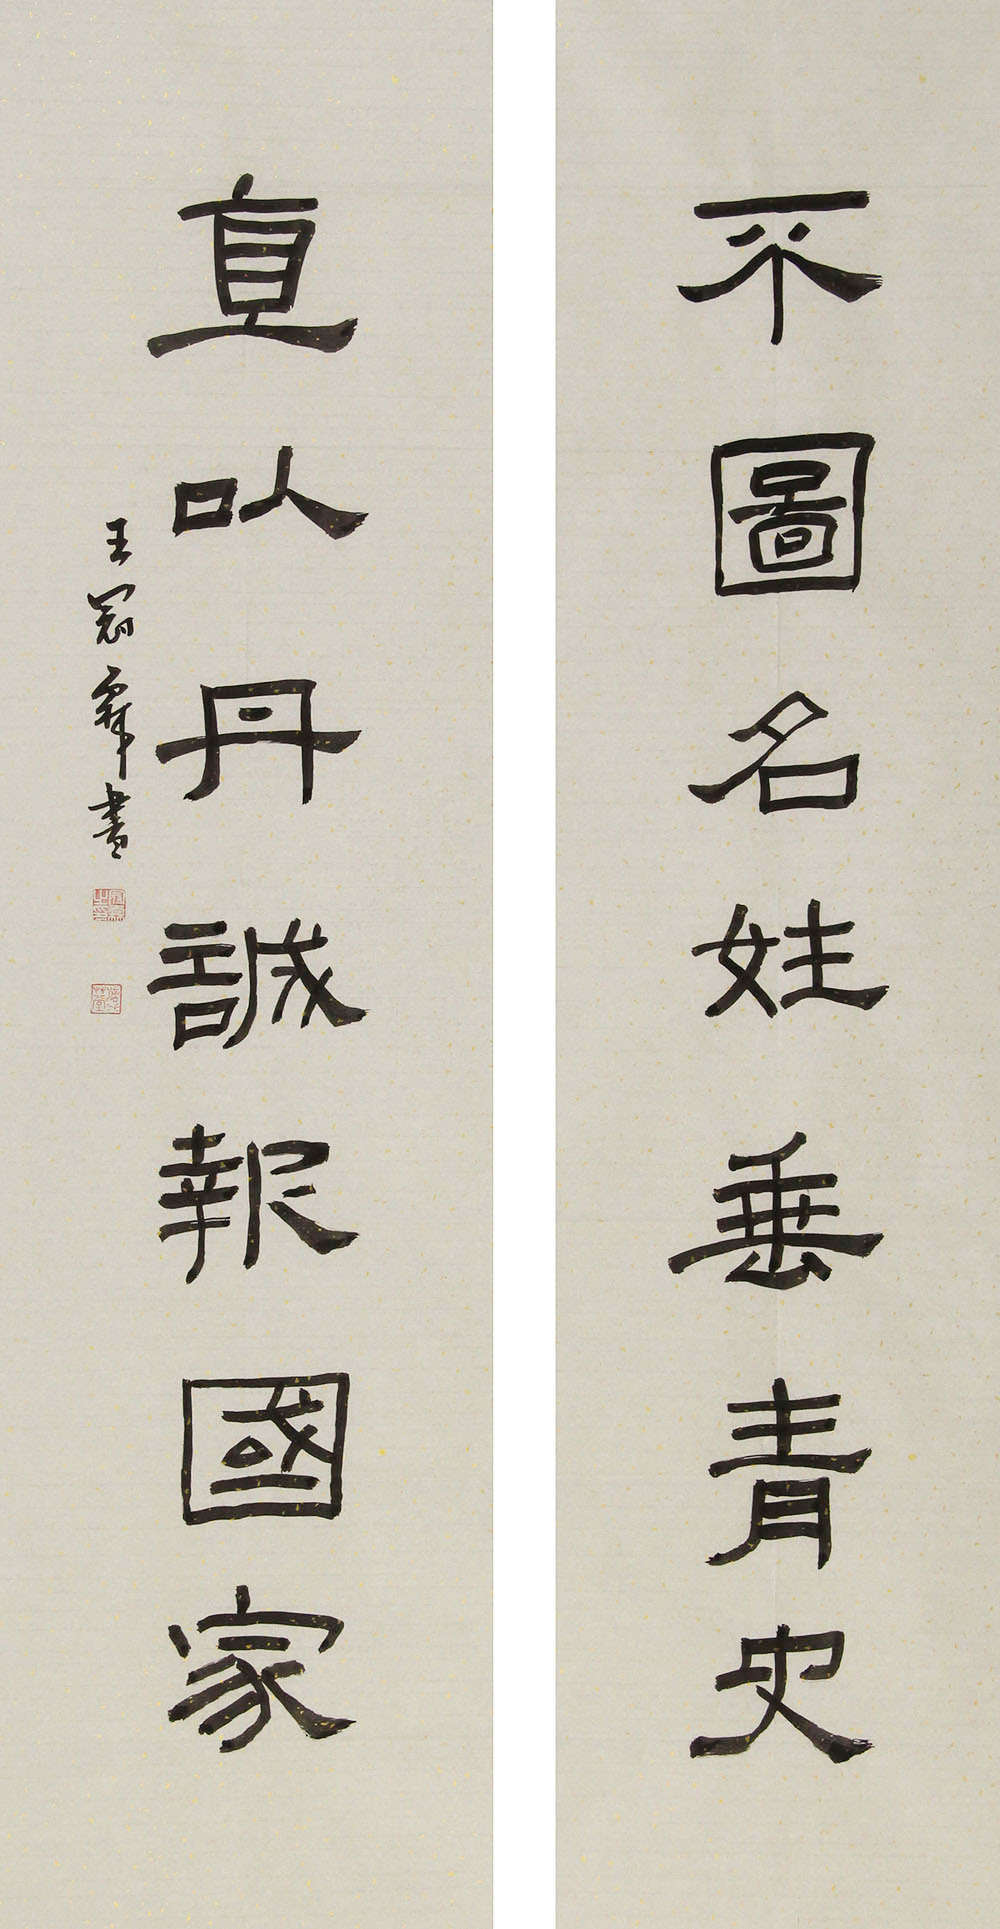 不圖名姓垂青史
直以丹誠報國家
王冠軍書